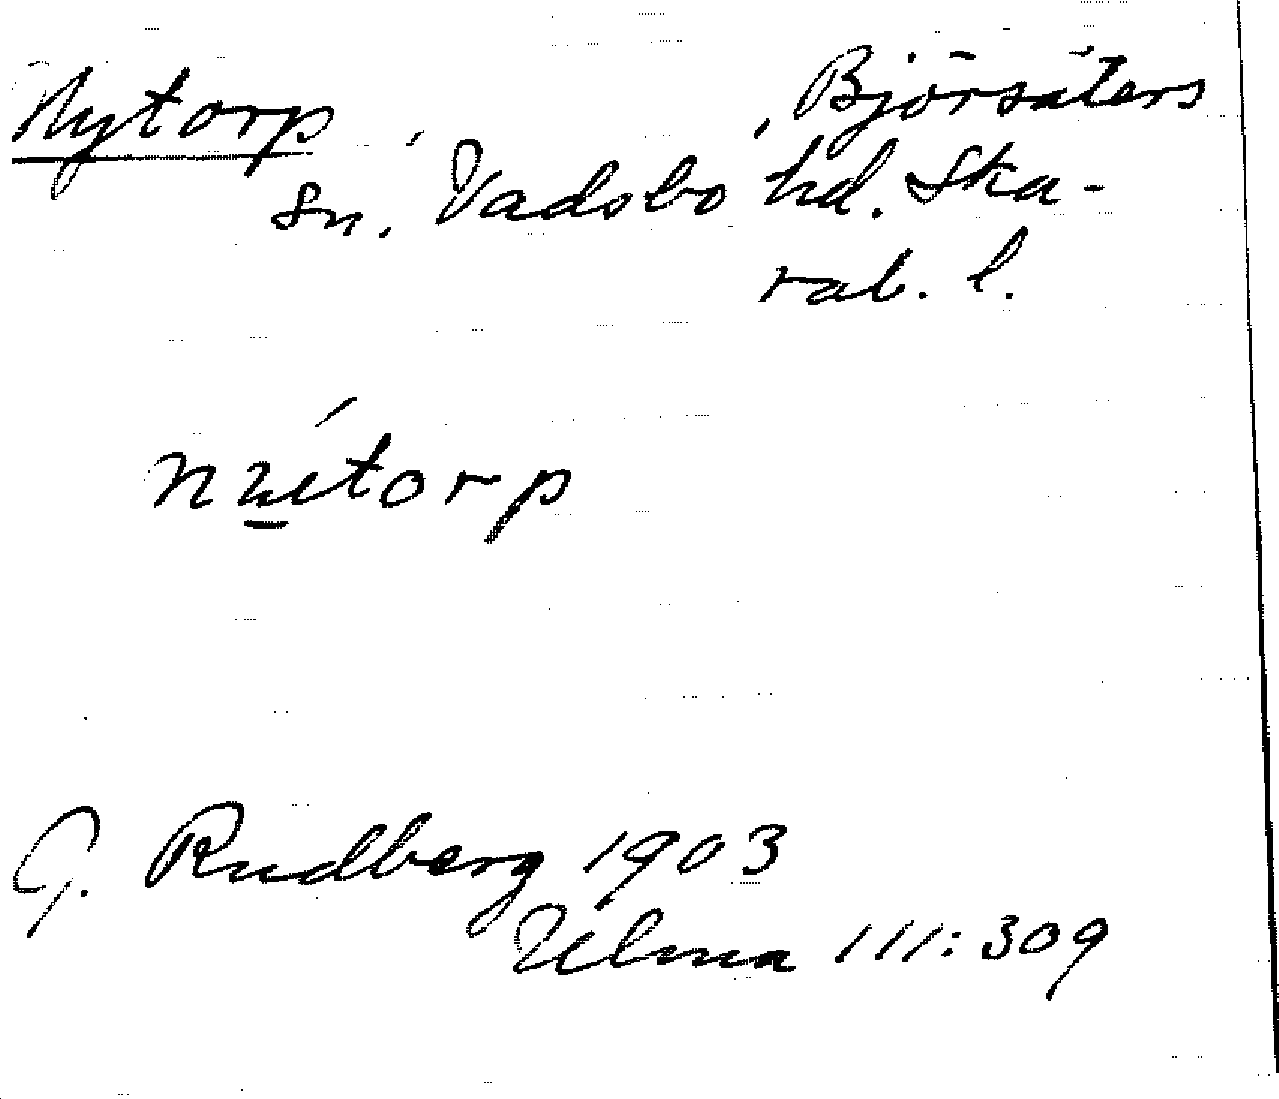 Nytorp, Björsäters
sn, Vadsbo hd. Ska-
rab. l.
G. Rudberg 1903
Ulma 111:309